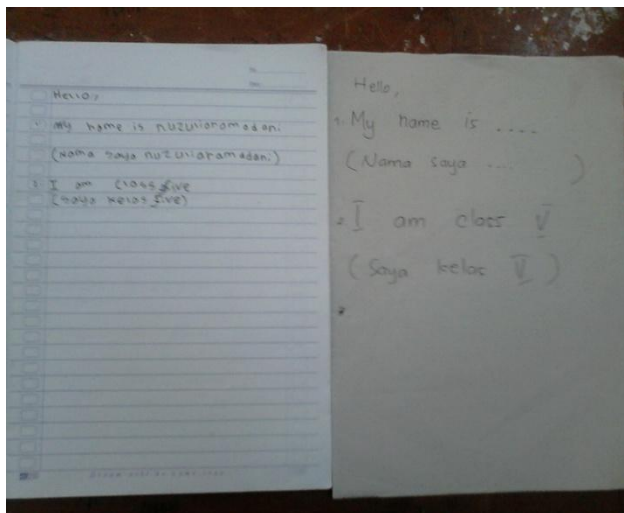 Hello,
1. My name is nuzuliaramadani
(Nama saya nuzuliaramadani)
2. I am class five
(saya kelas five)
Hello,
1. My name is ....
(Nama saya .... )
2. I am class V
(Saya kelas V)